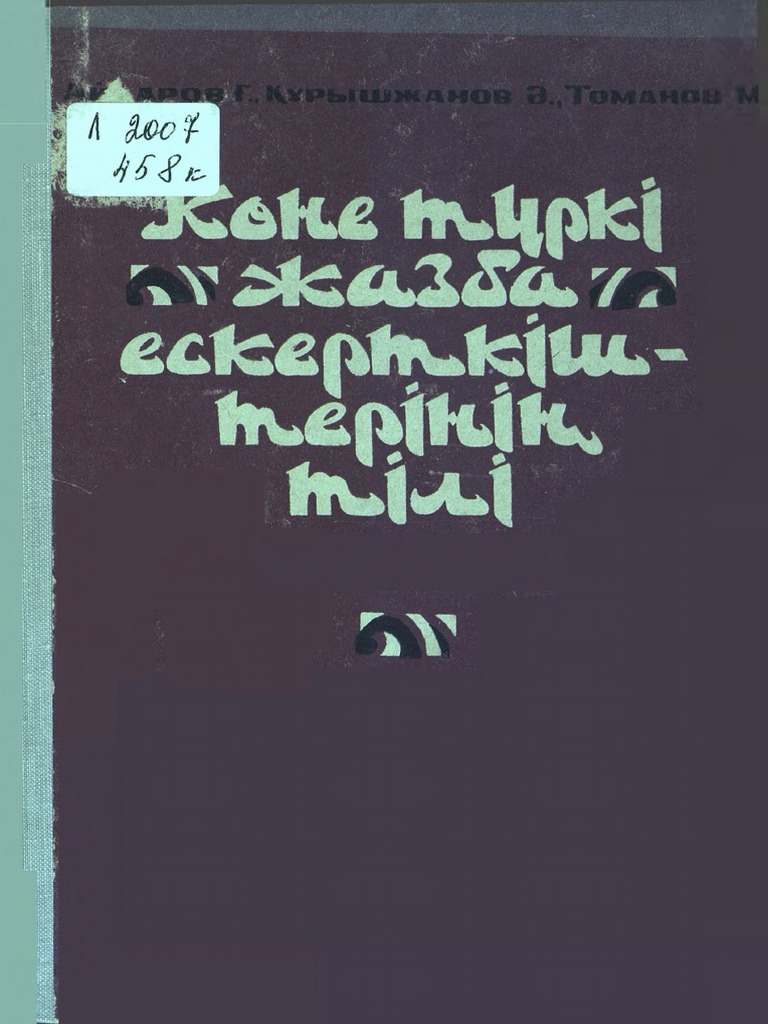 Айдаров Г., Құрышжанов Ә., Томанов М
Л 2007
458к
Көне түркі
жазба
ескерткіш-
терінің
тілі